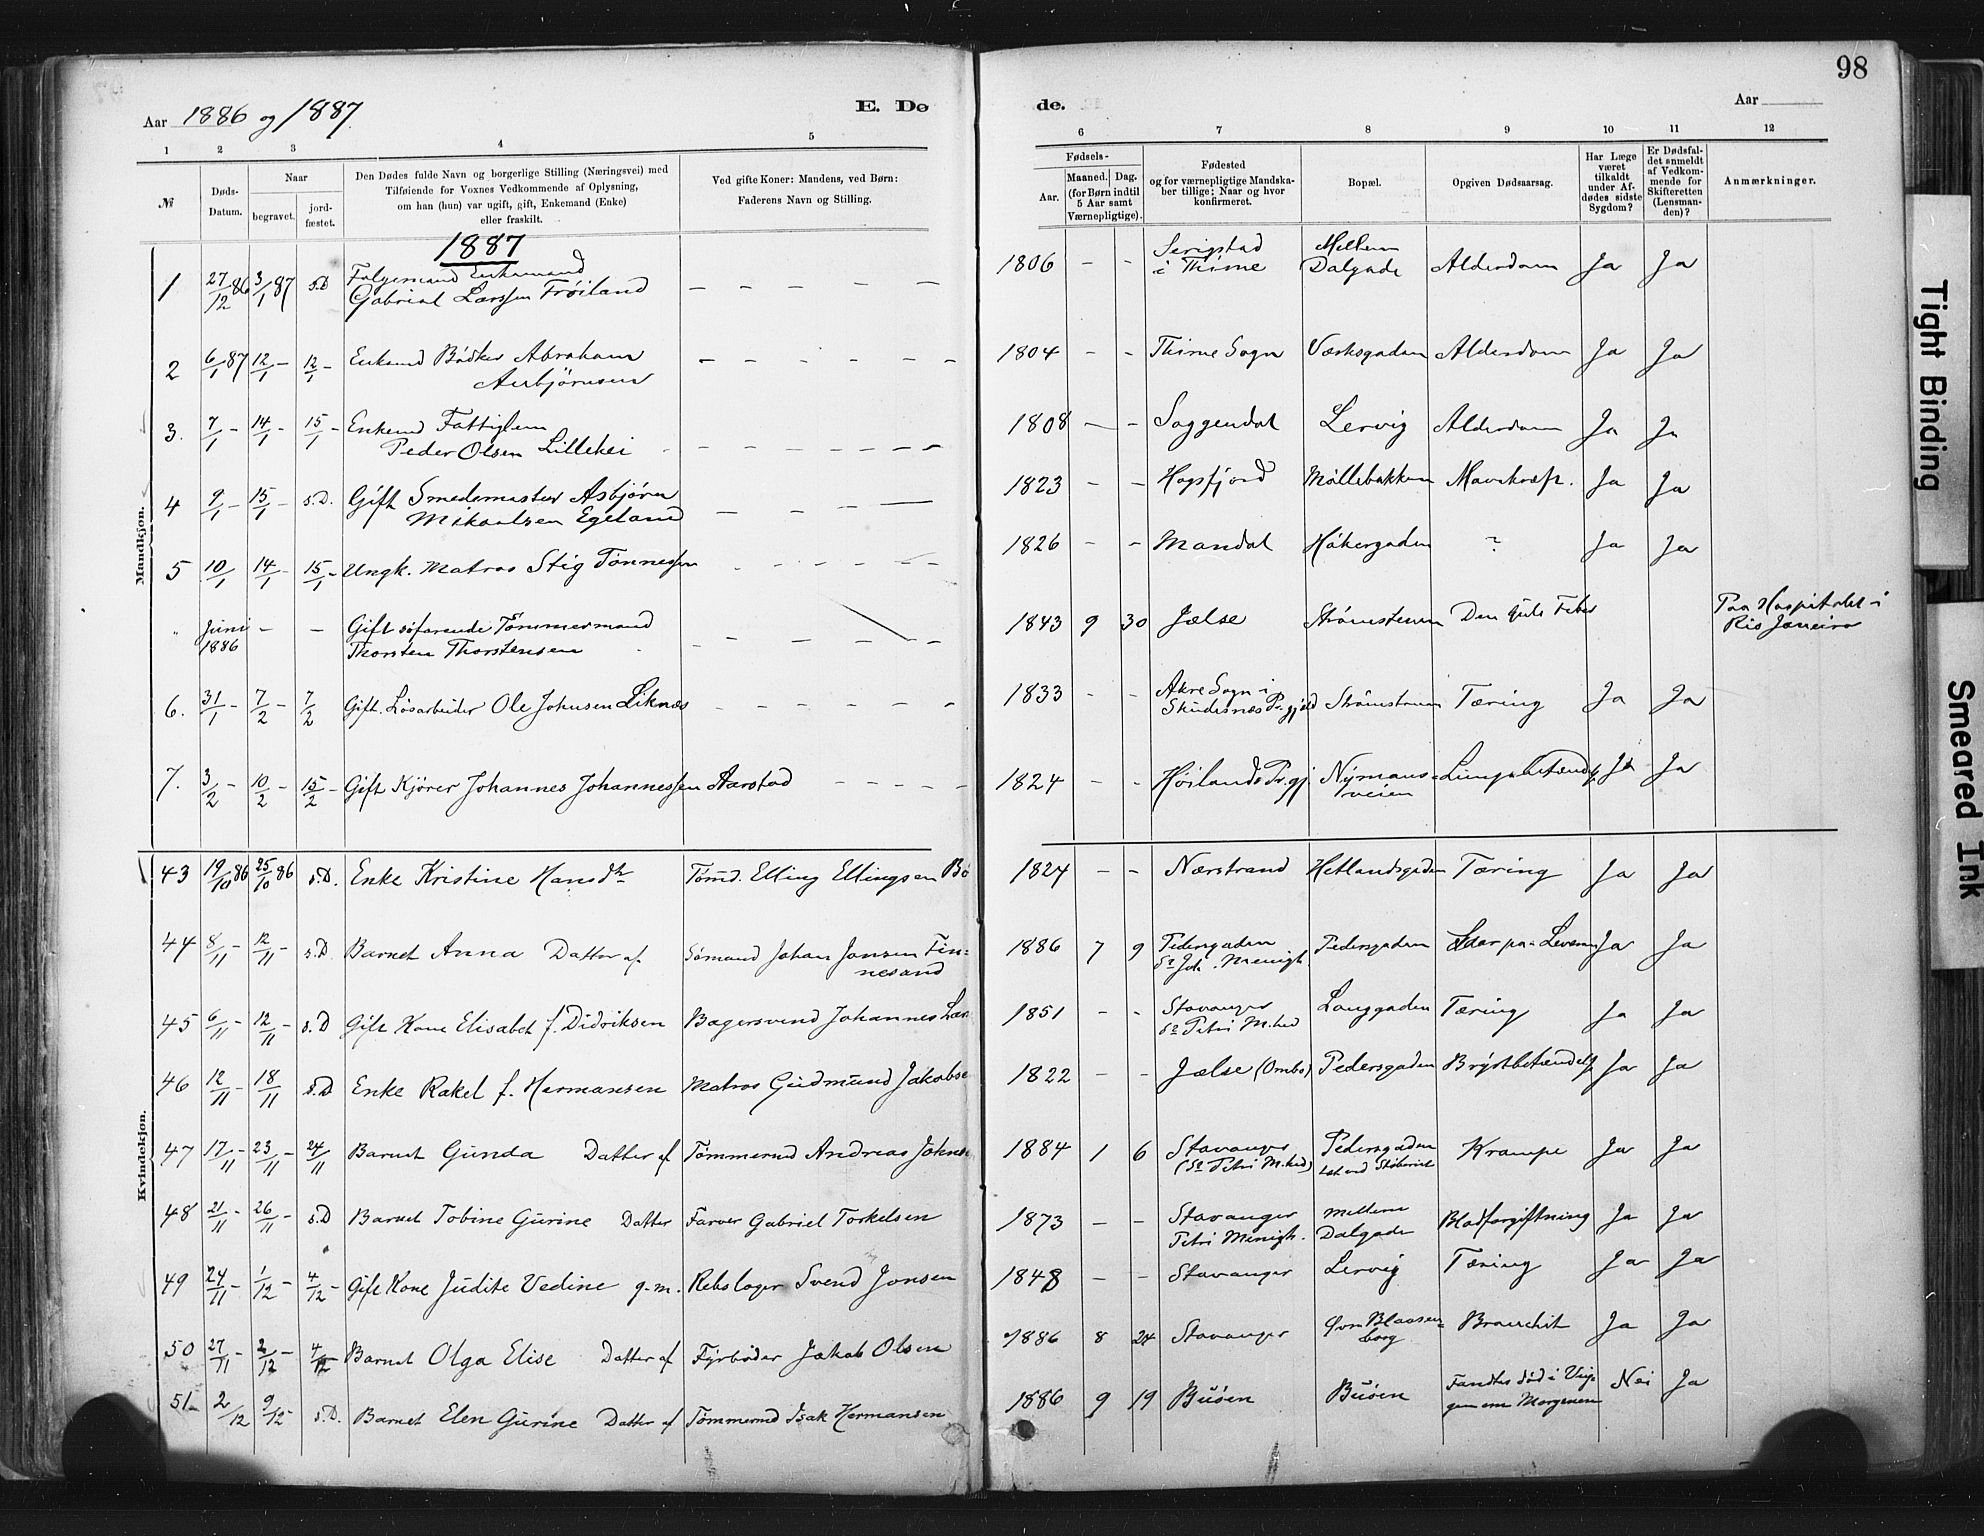 98
Aar 1886 og 1887
E. Dø
de.
Aar
1 2 3 4 5
6 7 8 9 10 11 12
№
Døds-
Datum.
Naar
begravet.
jord-
fæstet.
Den Dødes fulde Navn og borgerlige Stilling (Næringsvei) med
Tilføiende for Voxnes Vedkommende af Oplysning,
om han (hun) var ugift, gift, Enkemand (Enke)
eller fraskilt.
Ved gifte Koner: Mandens, ved Børn:
Faderens Navn og Stilling.
Fødsels-
Aar.
Maaned.
Dag.
(for Børn indtil
5 Aar samt
Værnepligtige).
Fødested
og for værnepligtige Mandska-
ber tillige: Naar og hvor
konfirmeret.
Bopæl.
Opgiven Dødsaarsag.
Har Læge
været
tilkaldt
under Af-
dødes sidste
Sygdom?
Er Dødsfal-
det anmeldt
af Vedkom-
mende for
Skifteretten
(Lensman-
den)?
Anmærkninger.
Mandkjøn.
1887
1 27/12 86 3/1 87 s.D Enkemand
Gabriel Larssen Frøiland — — — — —
1806 - - i Thime Dalgade Alderdom Ja Ja
2 6/1 87 12/1 - 12/1 - Enkemd Bødker Abraham
Asbjørnsen — — — — —
1804 - - Thime Sogn Værksgaden Alderdom Ja Ja
3. 7/1 - 14/1 - 15/1 - Enkemd Fattiglem
Peder Olsen Lillehei
1808 - - Soggendal Lervig Alderdom Ja Ja
4 9/1 - 15/1 - s.D. Gift Smedemester Asbjørn
Mikaelsen Egeland
1823 - - Høgsfjord Møllebakken Ja Ja
5 10/1 - 14/1 - 15/1 - Ungk. Matros Stig Tønnessen
1826 - - Mandal Høkergaden ? Ja Ja
" Juni
1886 - - Gift søfarende Tømmermand
Thorsten Thorstensen
1843 9 30 Jælse Strømstenen Den gule Feber
Paa Hospitalet i
Rio Janeiro
6. 31/1 - 7/2 - 7/2 Gift. Løsarbeider Ole Johnsen Liknæs
1833 - - Akre Sogn i
Skudesnæs Pr.gjeld Tæring Ja Ja
7. 3/2 - 10/2 - 15/2 - Gift Kjører Johannes Johannessen Aarstad
1824 - - Høilands Pr.gj. Nymans-
veien Lungebetændelse Ja Ja
Kvindekjøn.
43 19/10 86 25/10 86 s.D. Enke Kristine Hansdtr Tømd. Elling Ellingsen Bø
1824 - - Nærstrand Hetlandsgaden Tæring Ja Ja
44 8/11 - 12/11 - s.D. Barnet Anna Datter af Sømand Johan Jonsen Fin-
nesand
1886 7 9 Pedersgaden
St Joh. Menigh. Pedersgaden Ja Ja
45 6/11 - 12/11 - s.D Gift Kone Elisabet f. Didriksen Bagersvend Johannes
1851 - - Stavanger
St Petri M.hed Langgaden Tæring Ja Ja
46 12/11 - 18/11 s.D Enke Rakel f. Hermansen Matros Gudmund Jakobse
1822 - - Jælse (Ombo) Pedersgaden Brystbetændelse Ja Ja
47 17/11 - 23/11 - 24/11 Barnet Gunda Datter af Tømmermd Andreas Johns
1884 1 6 Stavanger
(St Petri M.hed) Pedersgaden
Krampe Ja Ja
48 21/11 - 26/11 - s.D Barnet Tobine Gurine Datter Farver Gabriel Torkelsen
1873 - - Stavanger
Petri Menigh. Mellem
Dalgade Blodforgiftning Ja Ja
49 24/11 - 1/12 - 4/12 - Gift Kone Judite Vedine g.m. Rebslager Svend Jonsen
1848 - - Stavanger Lervig Tæring Ja Ja
50 27/11 - 2/12 - 4/12 - Barnet Olga Elise Datter af Fyrbøder Jakob Olsen
1886 8 24 Stavanger Øvre Blaasen-
borg Bronchit Ja Ja
51 2/12 9/12 - s.D. Barnet Elen Gurine Datter af Tømmermd Isak Hermansen
1886 9 19 Buøen Buøen Fandtes død i Vug-
gen om Morgenen Nei Ja
Tight Binding
Smeared Ink